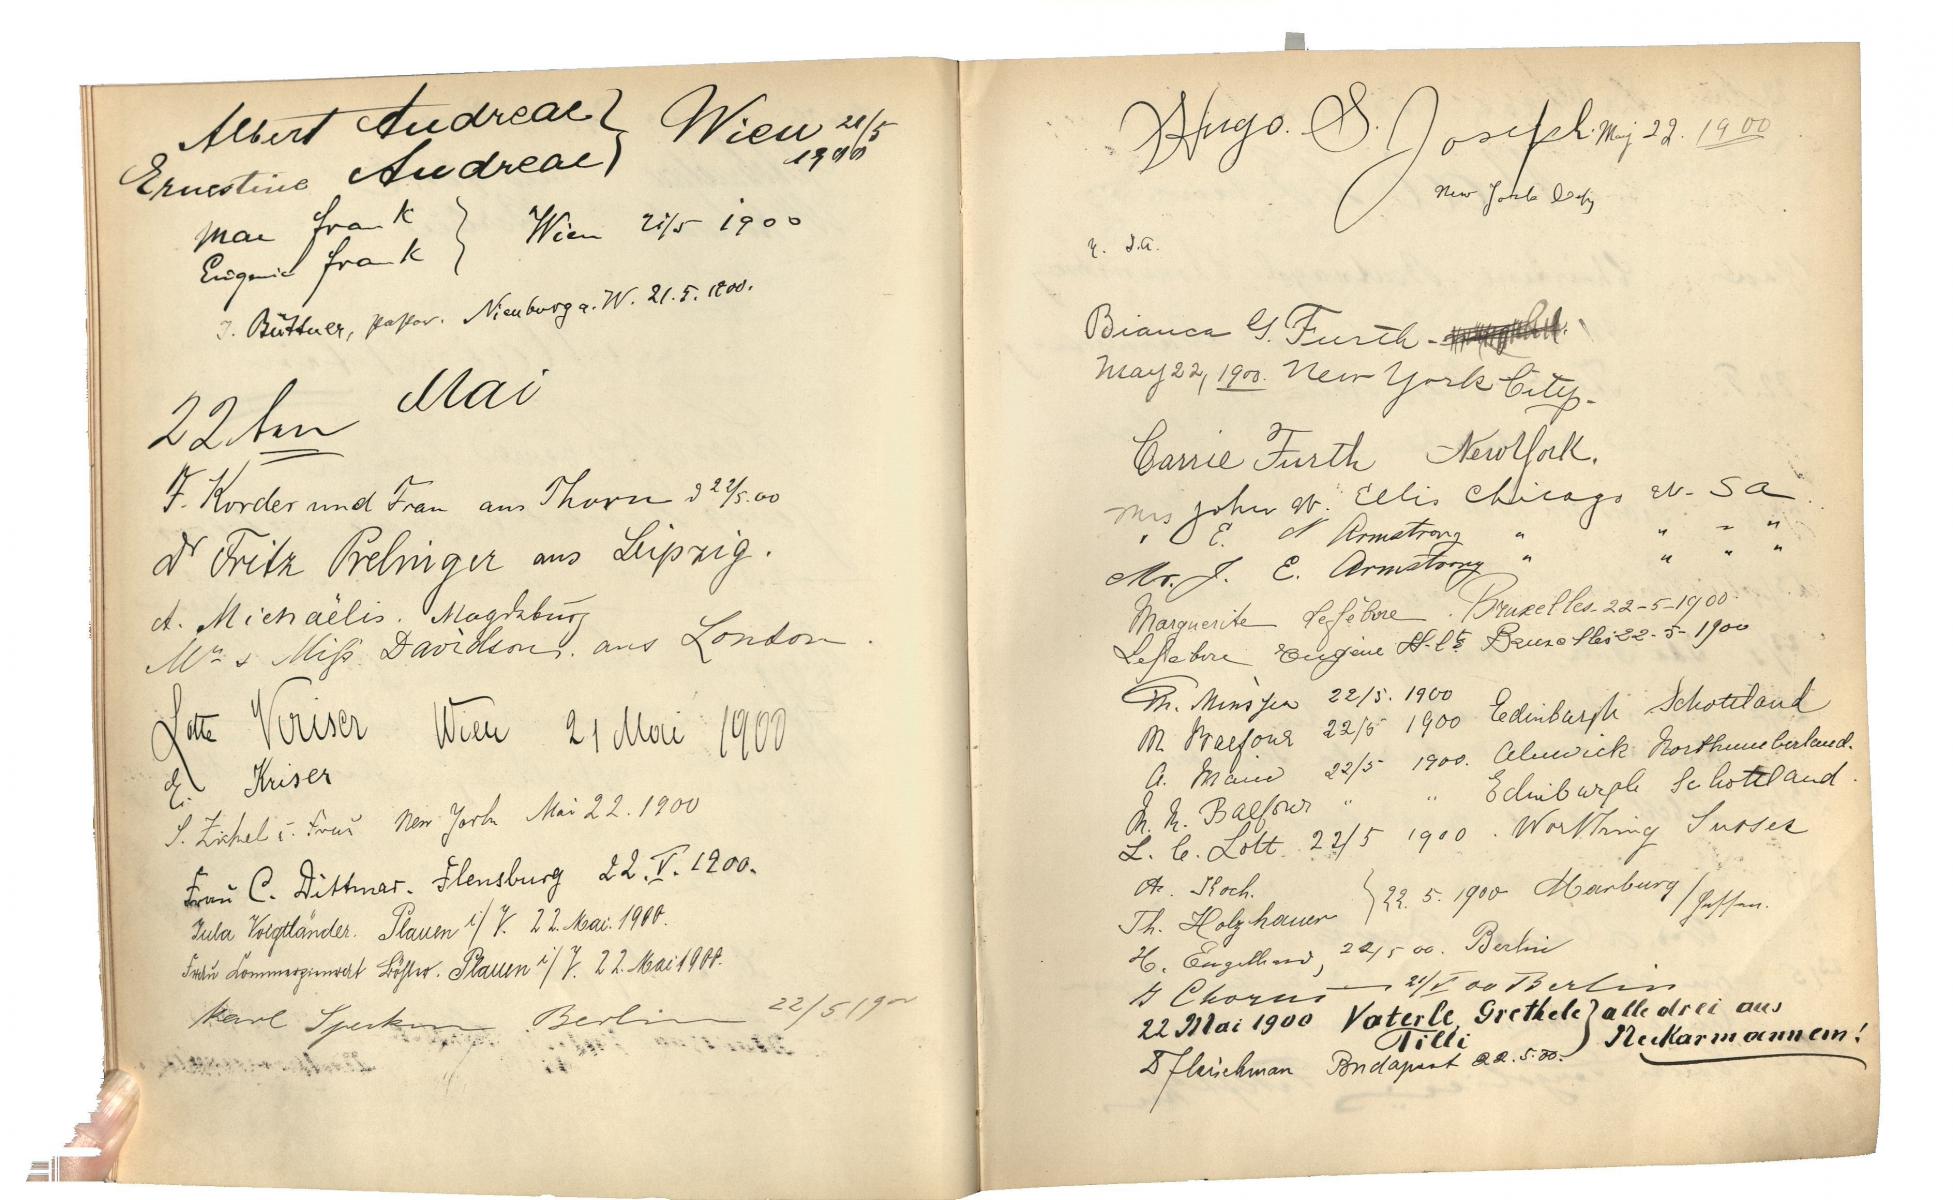 Albert Andreae } Wien 21/5 1900
Ernestine Andreae
Max Frank } Wien 21/5 1900
Eugenie Frank
J. Büttner, Pastor. Nienburg a. W. 21.5.1900.
22ten Mai
F. Korder und Frau aus Thorn d 22/5.00
Dr Fritz Prelinger aus Leipzig.
A. Michaëlis. Magdeburg
Mr & Miss Davidson. aus London.
Lotte Kriser Wien 21 Mai 1900
E. Kriser
S. Zickel u. Frau New York Mai 22. 1900
Frau C. Dittmar. Flensburg 22. V. 1900.
Jula Voigtländer. Plauen i/V. 22. Mai. 1900.
Frau Kommerzienrat Plauen i/V. 22. Mai 1900.
Karl Berlin 22/5 1900
Hugo. S. Joseph. May 22. 1900
New York City
Bianca G. Furth -
May 22, 1900. New York City.
Carrie Furth New York.
Mrs John W. Ellis Chicago U. S a.
" E. N Armstrong " " " "
Mr. J. E. Armstrong " " " "
Marguerite Lefèbvre. Bruxelles 22-5-1900
Lefebvre Eugène Bruxelles 22-5-1900
Th. 22/5. 1900
M. Balfour 22/5 1900 Edinburgh Schottland
A. Main 22/5 1900. Alnwick Northumberland.
M. M. Balfour " " Edinburgh Schottland.
L. C. Lott 22/5 1900. Worthing Sussex
A. Koch. } 22. 5. 1900 Marburg / Hessen.
Th. Holzhauer
H. Engelhard, 22/5 00. Berlin
Chorus 21/V 00 Berlin
22 Mai 1900 Vaterle, Grethele } alle drei aus
Tilli Neckarmannem!
D Fleischman Budapest 22.5.00.